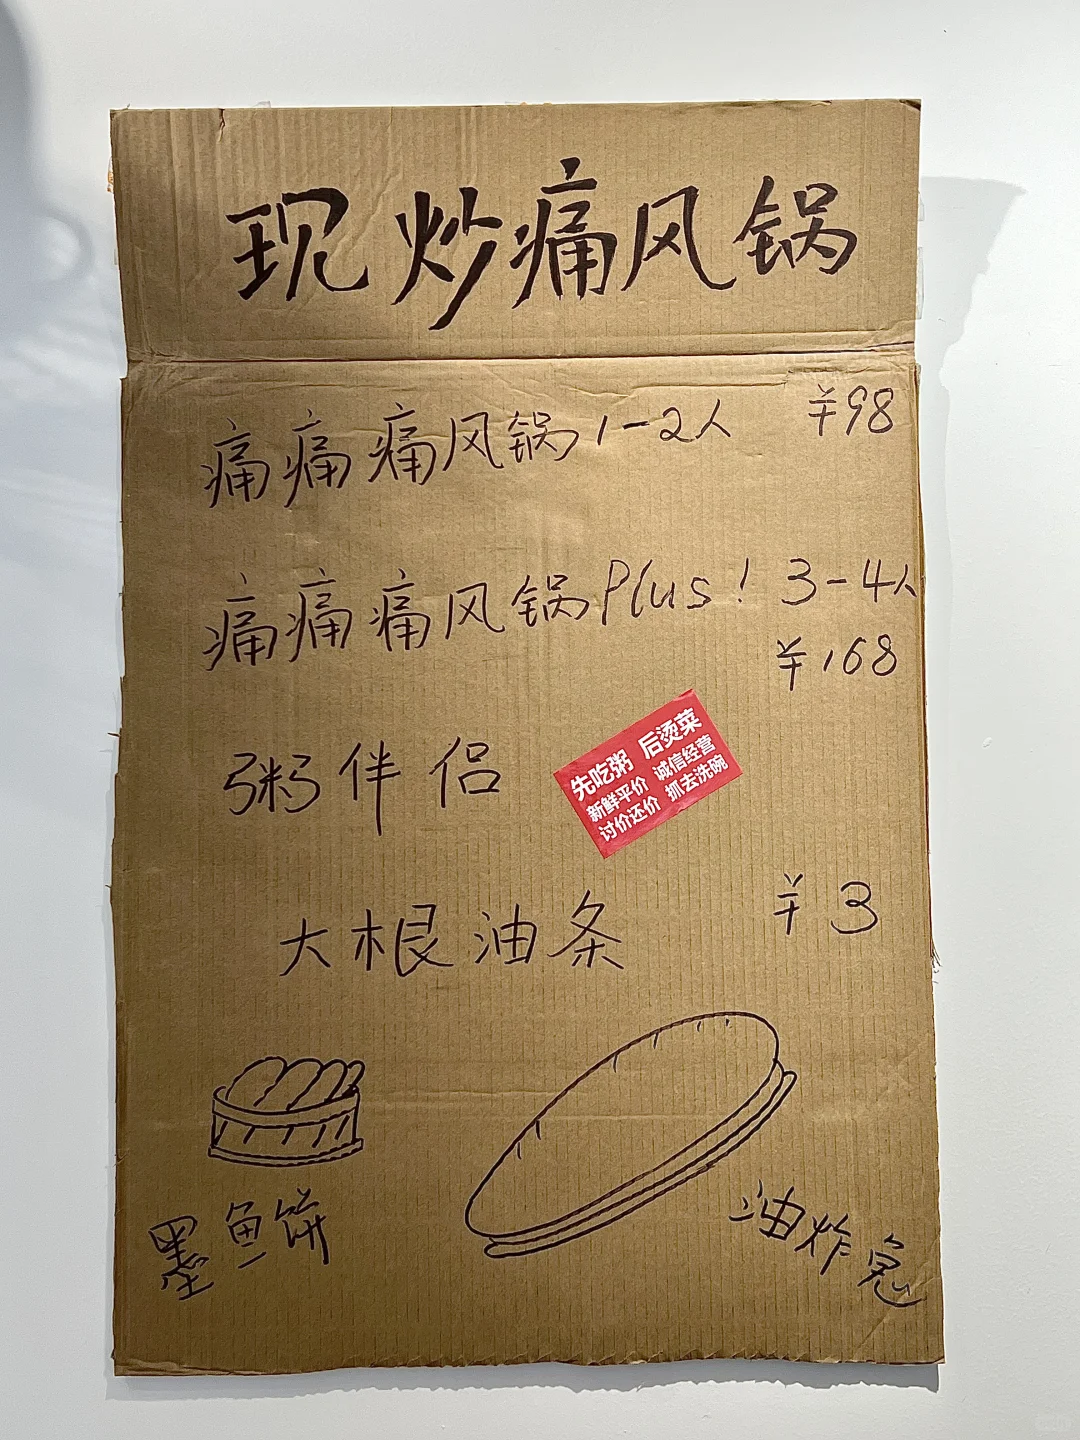 现炒痛风锅
痛痛痛风锅1-2人 ¥98
痛痛痛风锅Plus! 3-4人
¥168
粥伴侣
先吃粥 后烫菜
新鲜平价 诚信经营
讨价还价 抓去洗碗
大根油条 ¥3
墨鱼饼
油炸鬼